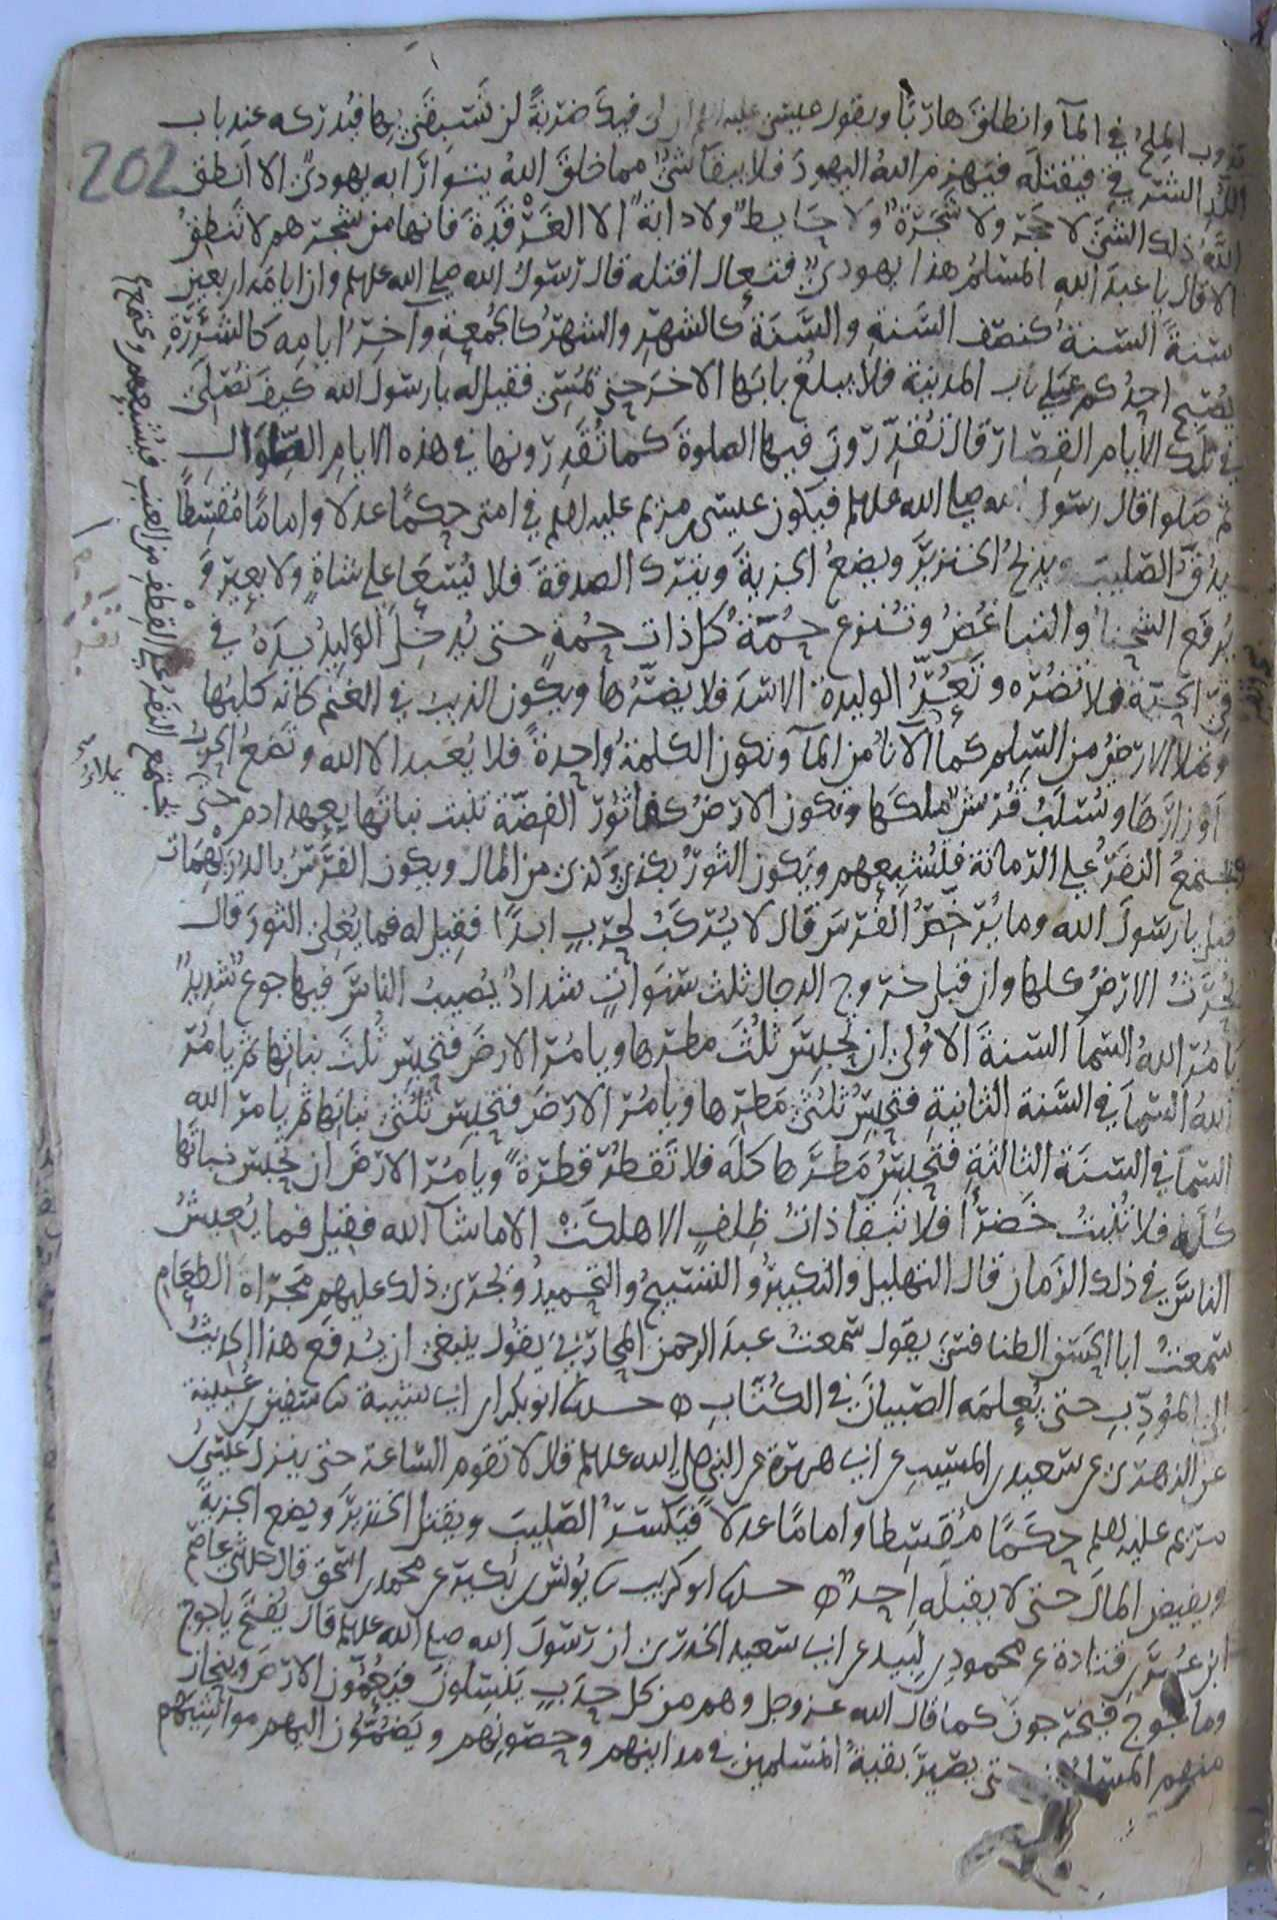 يذوب الملح في المآ وانطلق هاربًا ويقول عيسى عليه السلم ان لي فيك ضربةً لن تسبقني بها فيدركه عند باب
202
اللُد الشرقي فيقتله فيهزم اللهُ اليهودَ فلا يبقا شئ مما خلق اللهُ يتوارَا به يهوديٌ الا انطق
اللهُ ذلك الشئ لا حجر ولا شجرة ولا حايط ولا دابة الا الغَرْقَدَة فانها من شجرهم لا تنطِقُ
الا قال يا عبدَ اللهِ المسلمُ هذا يهوديٌ فتعال اقتله قال رسولُ الله صلى الله عليه وسلم وان ايامَه اربعين
سنةً السنةُ كنصف السَنةِ والسَنَةُ كالشهرِ والشهرُ كالجُمعةِ وآخِرُ ايامِه كالشَرَرَةِ
يُصبح احدُكم على باب المدينة فلا يبلغ بابَها الاخرَ حتى يُمسِيَ فقيل له يا رسولَ الله كيفَ نُصلي
في تلك الأيام القِصار قال تُقدِّرون فيها الصلوةَ كما تُقَدِرونها في هذه الايامِ الطِوالِ
ثم صَلوا قال رسول الله صلى الله عليه وسلم فيكون عيسى بن مريم عليه السلم في امتي حكمًا عدلا وامامًا مُقسِطًا
يدُقُّ الصليبَ ويذبحُ الخنزيرَ ويضعُ الجزيةَ ويتركُ الصدقةَ فلا يُسعَا على شاةٍ ولا بعيرٍ وَ
يُرفَع الشحنا والتباغُضُ وتُنزع حُمَةُ كل ذات حُمةٍ حتى يُدخِلَ الوَليدُ يدَهُ في
في الحيّة فلا تضُرّه وتُفِرُّ الوليدةُ الاسَدَ فلا يضرُّها ويكون الذيب في الغنم كانه كلبُها
وتملأ الارضُ من السِلم كما يملأ الآناُ من المآ وتكون الكلمةُ واحدةً فلا يُعبد الا الله وتضعُ الحربُ
اوزارَها وتُسلَبُ قُريشٌ ملكَها وتكون الارضُ كفاثورِ الفضّة تنبت نباتَها بعهد ادم حتى
يجتمع النَفَرُ على القِطْفِ من العنب فيُشبِعهم ويجتمع
فيجتمعُ النفَرُ على الرمانة فتُشبِعهم ويَكون الثورُ بكذي وكذي من المال ويكون الفرَسُ بالدُرَيْهِمَات
قيل يا رسولَ الله وما يُرخِصُ الفَرَس قال لا يُركَبُ لحربٍ ابدًا فقيل له فما يُغلي الثورَ قال
تُحرَثُ الارضُ كلها وان قبل خروج الدجال ثلث سَنَواتٍ شدادٌ يُصيب الناسَ فيها جوع شديد
يامُر اللهُ السماَ السنةَ الاُولي ان تحبِسَ ثُلُثَ مطرِها ويامُر الارضَ فتحبِس ثُلثَ نباتِها ثم يامُر
اللهُ السماَ في السَنة الثانيةِ فتحبِسُ ثُلثَيْ مَطرِها ويامُر الارضَ فتحبِس ثُلثَيْ نباتِها ثم يامر الله
السماَ في السنَة الثالثةِ فتحبِسُ مَطرَها كلَه فلا تَقطُر قطرةً ويامُر الارضَ ان تحبِس نباتَها
كُلَه فلا تُنبتُ خَضرًا فلا تبقا ذاتُ ظِلفٍ الا هلكَتْ الا ماشآ الله فقيل فما يُعِيشُ
الناسَ في ذلك الزمان قال التهليل والتكبيرُ والتسبيحُ والتحميدُ ويُجرى ذلك عليهم مَجراة الطعامِ
سمعتُ ابا الحسن الطنافسي يقول سَمعتُ عبدَ الرحمن المحاربيَ يقُول ينبغي ان يُدفَع هذا الحديثُ
الى المؤدِّبِ حتى يُعلمَه الصبيانَ في الكُتّابِ حدثنا ابو بكر بن ابي شيبة ثنا سفين بن عُيينة
عن الزهري عن سعيد بن المسيبِ عن ابي هريرة عن النبي صلى الله عليه وسلم قال لا تقوم الساعة حتى ينزل عيسى بن
مريم عليه السلم حكَمًا مُقسِطا وامامًا عدلا فيكسرُ الصليبَ ويقتل الخنزيرَ ويضع الجزيةَ
ويفيض المالَ حتى لا يقبلَه احدٌ حدثنا ابو كريب ثنا يُونُس بن بُكير عن محمد بن اسحق قال حدثني عاصم
بن عُمَر بن قتادة عن محمودِ بن لَبيد عن ابي سعيد الخدري ان رسولَ الله صلى الله عليه وسلم قال تُفتَحُ ياجوج
وماجوج فيخرجونَ كما قال الله عز وجل وهم من كل حدَبٍ يَنسِلون فيَعُمّون الارضَ وينحازُ
منهم المسلمون حتى يصيرَ بقيةُ المسلمين في مداينهم وحصونهم ويَضُمّون اليهم مواشِيَهُم